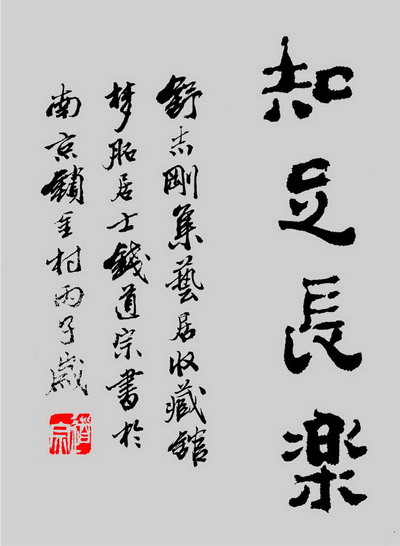 知足長樂
舒志剛集藝居收藏館
梦胎居士錢道宗書於
南京鎖金村丙子歲
道宗